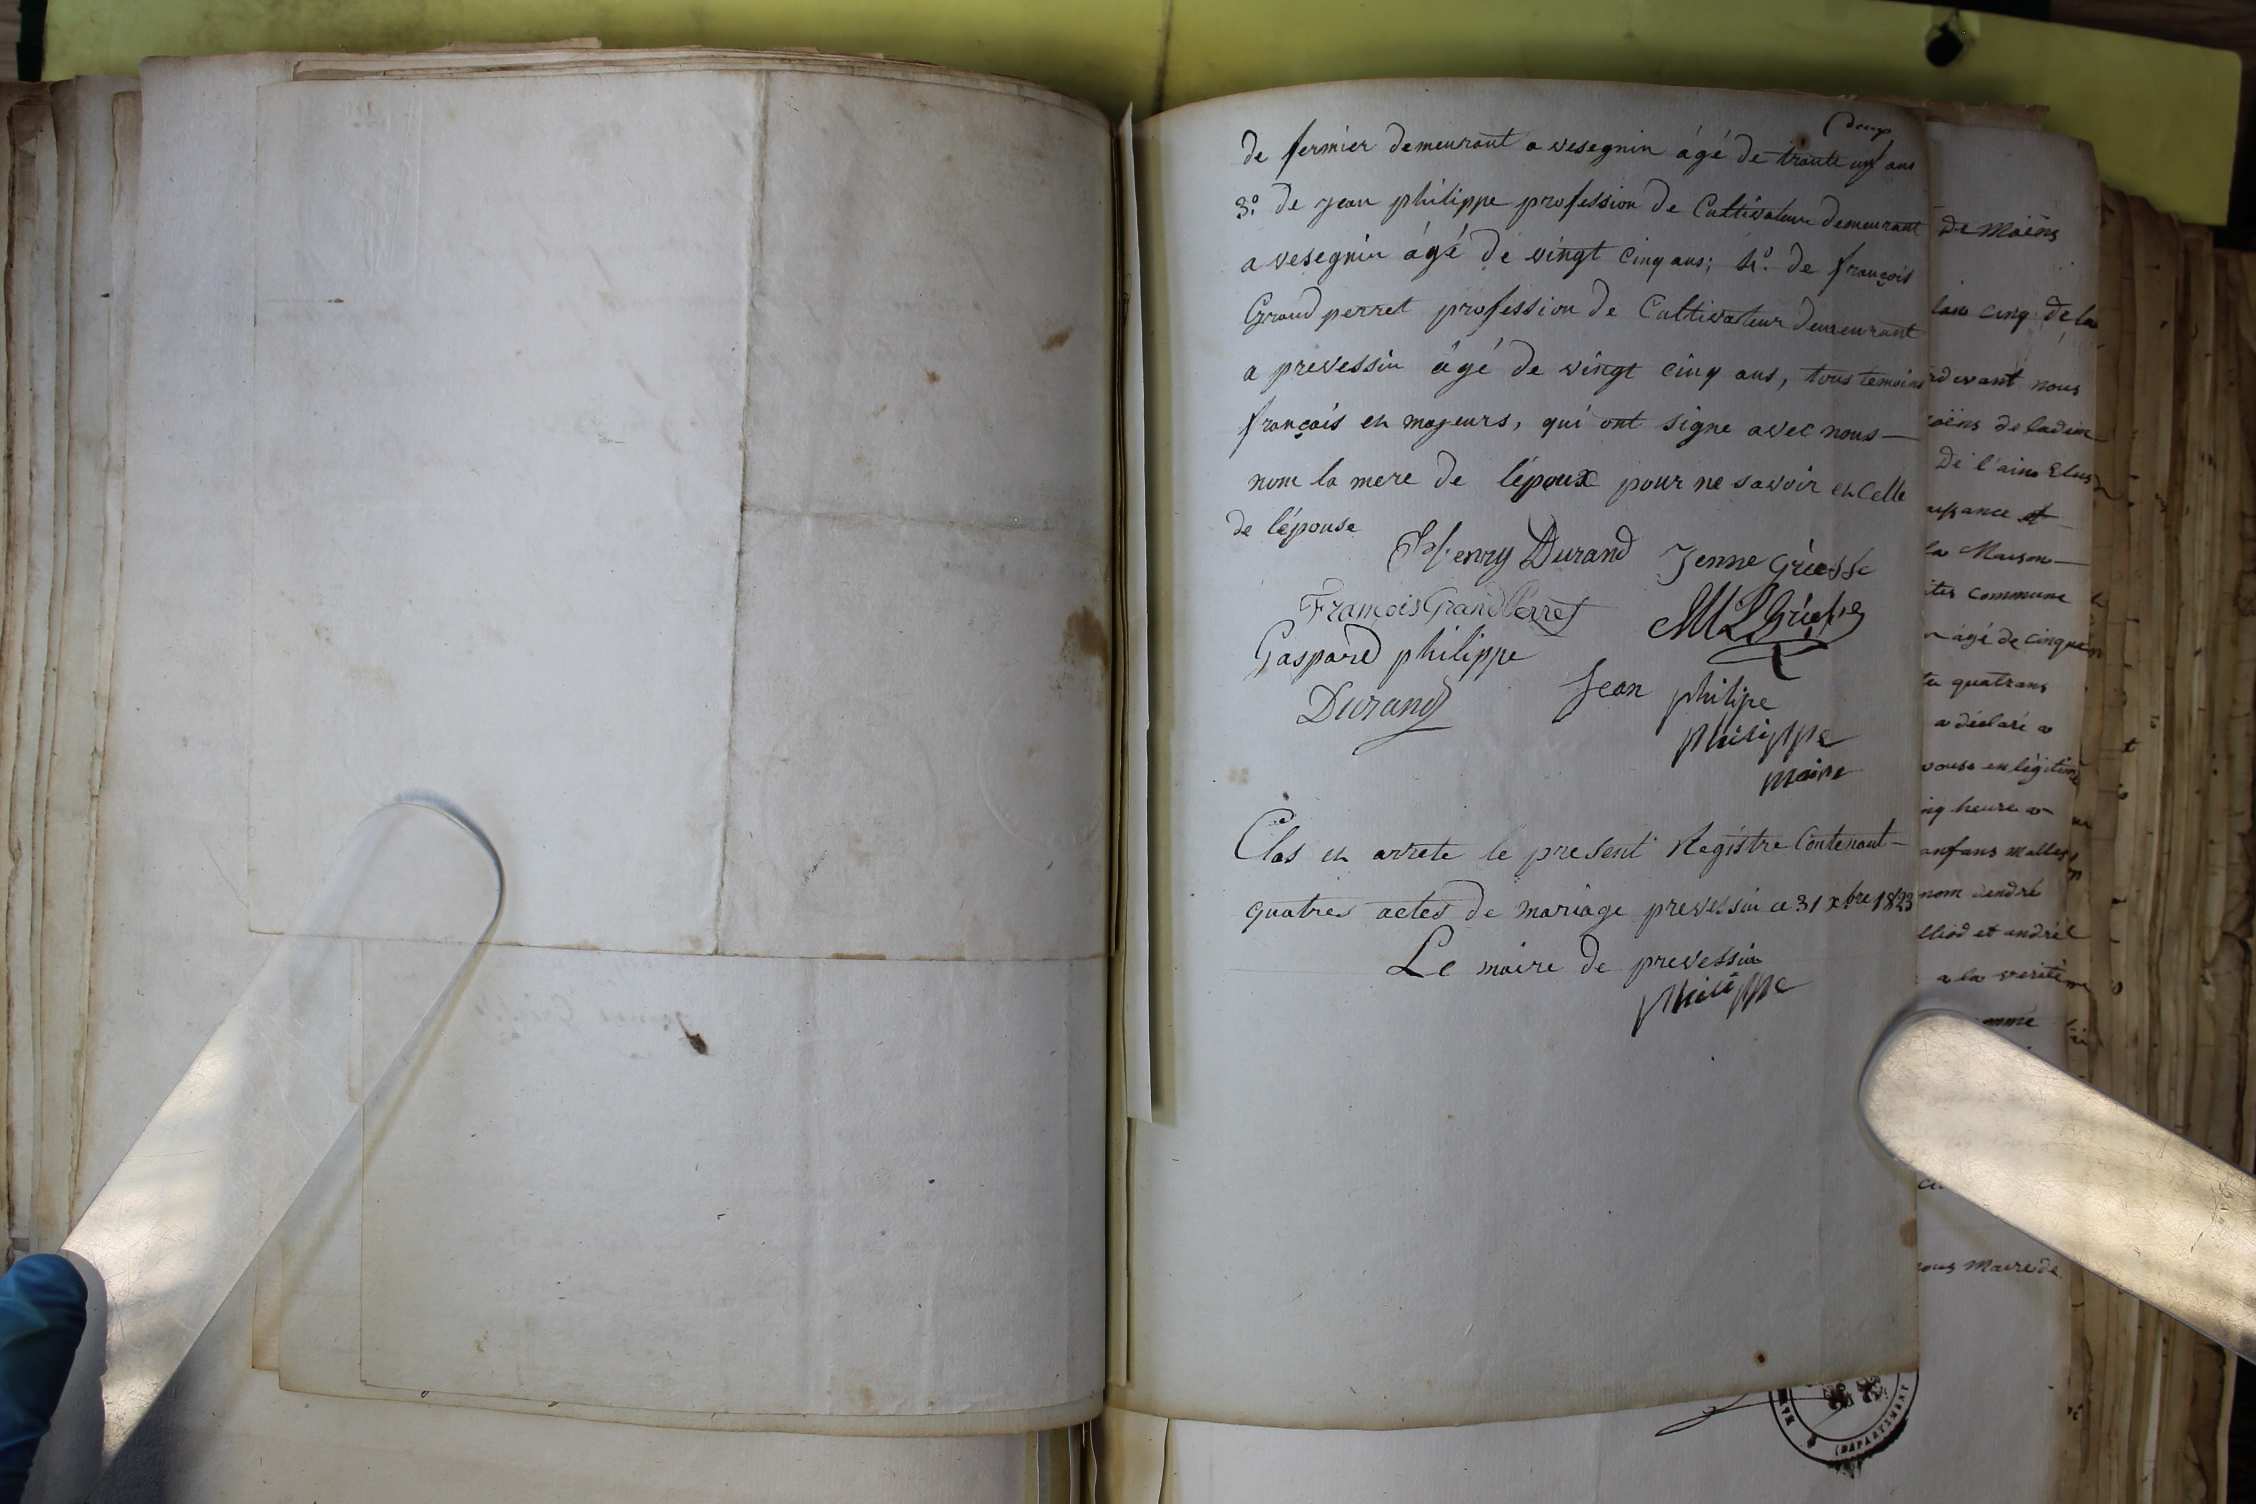 deux
de fermier demeurant a vesegnin âgé de trante un ans
3.º de jean philippe profession de Cultivateur demeurant
a vesegnin âgé de vingt cinq ans; 4.º de françois
Grand perret profession de Cultivateur demeurant
a prevessin âgé de vingt cinq ans, tous temoins
françois et majeurs, qui ont signe avec nous —
nom la mere de lépoux pour ne savoir et celle
de lépouse
Henry Durand Jenne Griesse
François Grand Perret
Gaspard philippe
Durand Jean philipe
philippe
maire
Clos et arrete le present Registre Contenant —
quatres actes de mariage prevessin ce 31 xbre 1823
Le maire de prevessin
philippe
de Moëns
lan cinq de la
devant nous
de ladim
De l'ain Elus
et
la Maison —
commune
âgé de cinquan
quatrans
a déclaré a
en légitime
heure a
anfans malles
nom dendré
et andré
a la verité
nous Maire de
(DEPARTEMENT